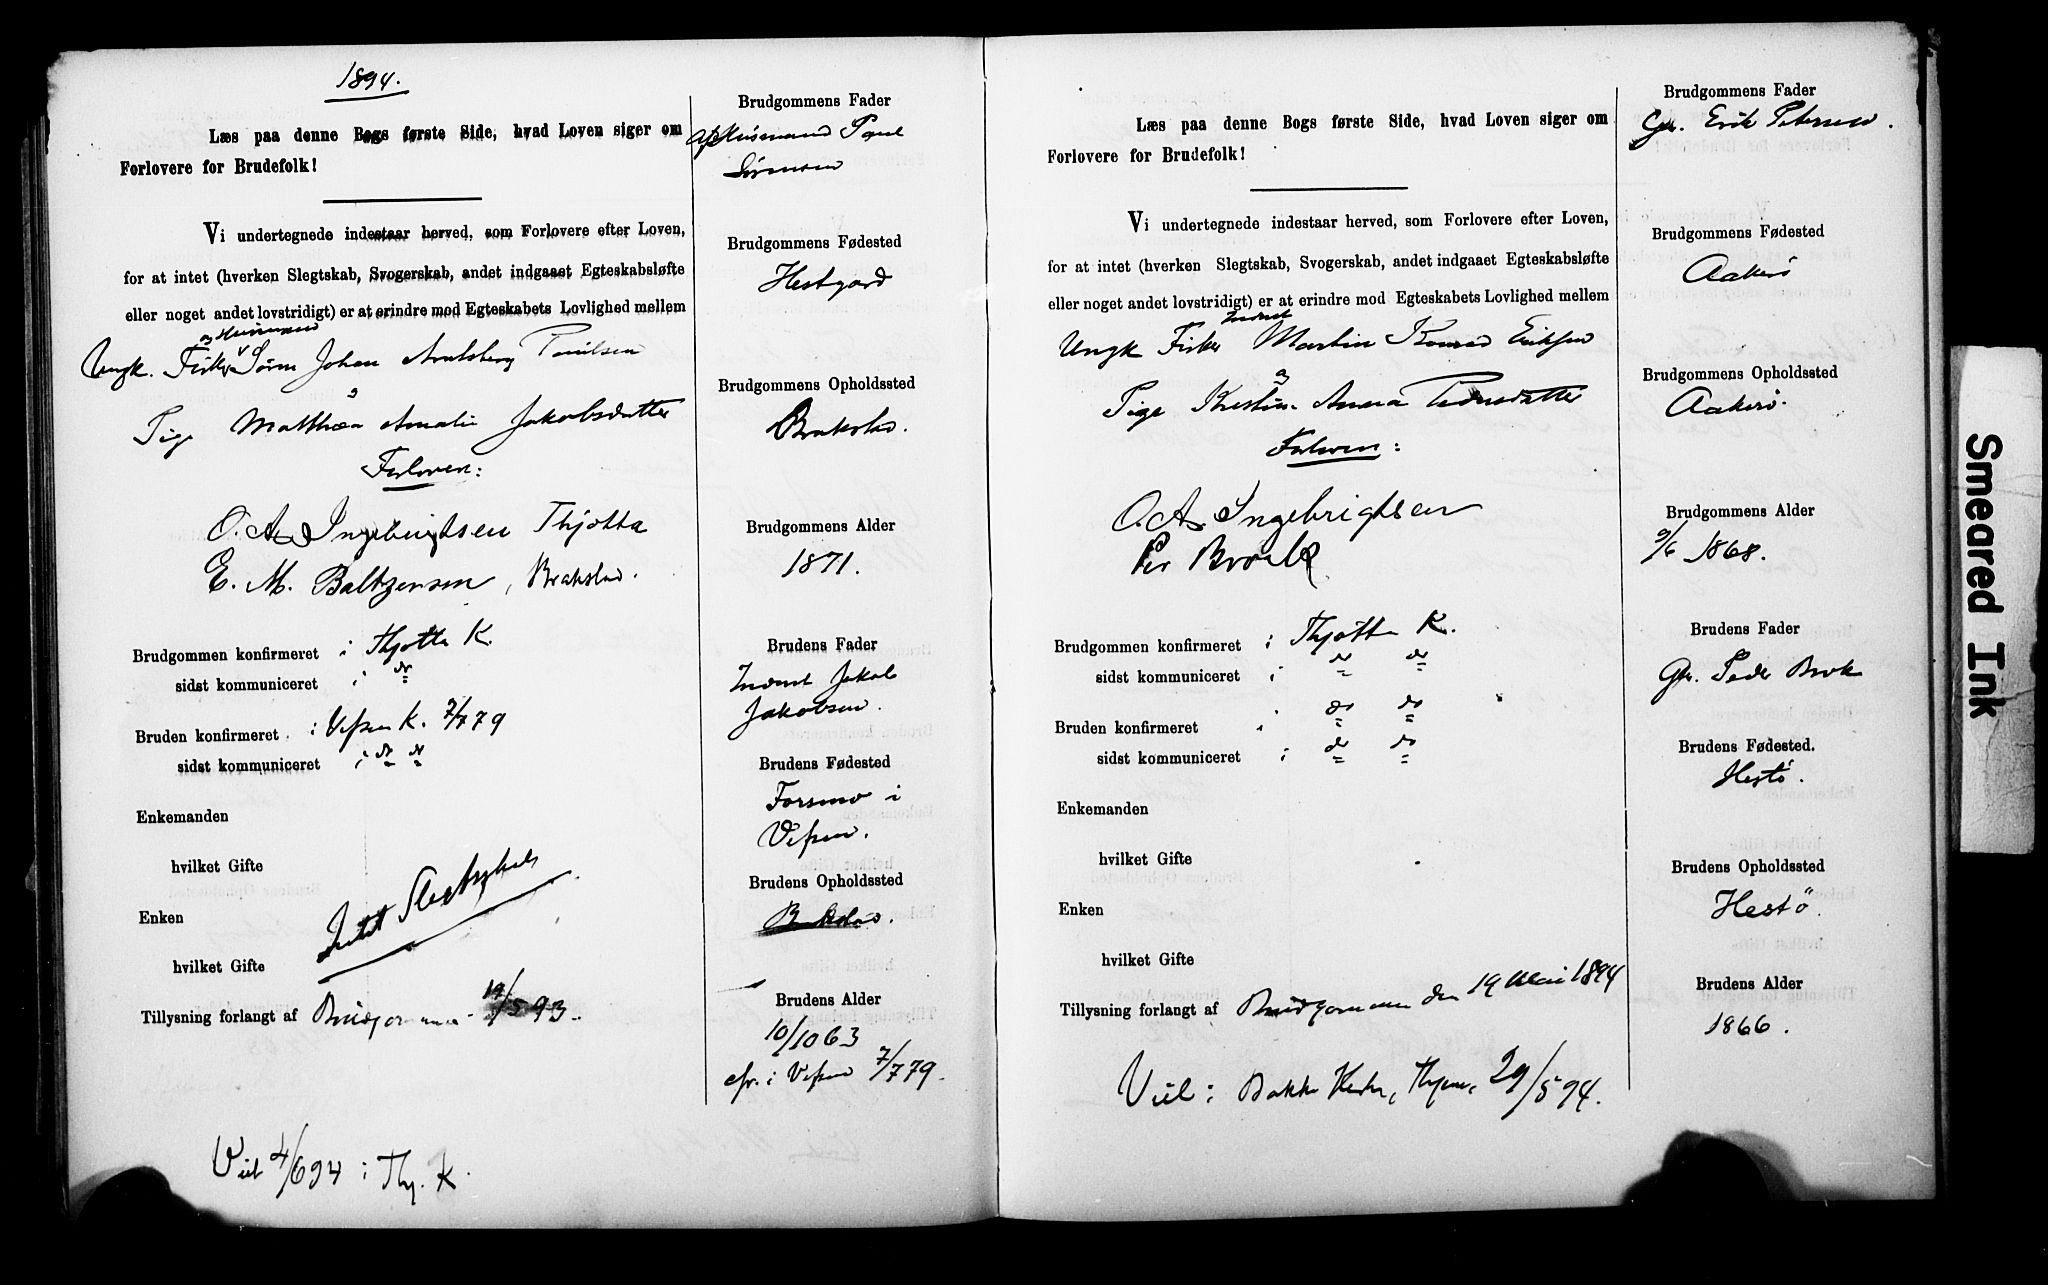 1894.
Læs paa denne Bogs første Side, hvad Loven siger om
Forlovere for Brudefolk!
Vi undertegnede indestaar herved, som Forlovere efter Loven,
for at intet (hverken Slegtskab, Svogerskab, andet indgaaet Egteskabsløfte
eller noget andet lovstridigt) er at erindre mod Egteskabets Lovlighed mellem
Ungk. Fisker Søren Johan Paulsen
og
Pige Matthæa Amalie Jakobsdatter
Forlovere:
O. A. Ingebrigtsen Thjøtta
E. M. Baltzersen, Brakslad.
Brudgommen konfirmeret i Thjøtta K.
sidst kommuniceret i do
Bruden konfirmeret i Vefsen K. 7/7 79
sidst kommuniceret i do do
Enkemanden
hvilket Gifte
Enken
hvilket Gifte
Intet Slegtskab
Tillysning forlangt af Brudgommen 19/5 93.
Viet 4/6 94 i Thj. K.
Brudgommens Fader
Husmand Paul
Sørensen
Brudgommens Fødested
Hestgard
Brudgommens Opholdssted
Brakslad.
Brudgommens Alder
1871.
Brudens Fader
Inderst Jakob
Jakobsen.
Brudens Fødested
Forsmo i
Vefsen.
Brudens Opholdssted
Brakslad.
Brudens Alder
10/10 63
cfr. i Vefsen 7/7 79.
Læs paa denne Bogs første Side, hvad Loven siger om
Forlovere for Brudefolk!
Vi undertegnede indestaar herved, som Forlovere efter Loven,
for at intet (hverken Slegtskab, Svogerskab, andet indgaaet Egteskabsløfte
eller noget andet lovstridigt) er at erindre mod Egteskabets Lovlighed mellem
Inderst
Ungk Fisker Martin Konrad Eriksen
og
Pige Kristine Anna Pedersdatter
Forlovere:
O. A. Ingebrigtsen
Per Brok
Brudgommen konfirmeret i Thjøtta K.
sidst kommuniceret i do do
Bruden konfirmeret i do do
sidst kommuniceret i do do
Enkemanden
hvilket Gifte
Enken
hvilket Gifte
Tillysning forlangt af Brudgommen den 19 Mai 1894
Viet i 29/5 94.
Brudgommens Fader
Gbr. Erik Petersen.
Brudgommens Fødested
Aakerø
Brudgommens Opholdssted
Aakerø.
Brudgommens Alder
9/6 1868.
Brudens Fader
Gbr. Peder Brok
Brudens Fødested.
Hestø.
Brudens Opholdssted
Hestö.
Brudens Alder
1866.
Smeared Ink